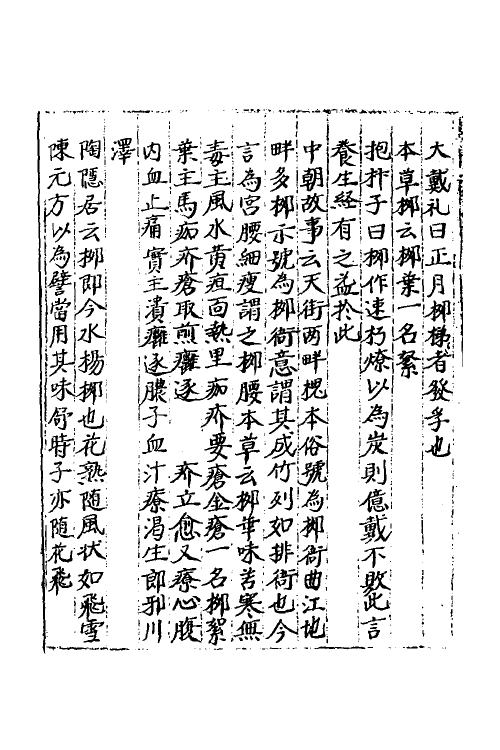 大戴礼曰正月柳稊者發孚也
本草柳云柳葉一名絮
抱朴子曰柳作速朽燎以為炭則億載不敗此言
養生経有之益扵此
中朝故事云天街两畔槐本俗號為柳衙曲江地
畔多柳示號為柳衙意謂其成竹列如排衙也今
言為宮腰細瘦謂之柳腰本草云柳華味苦寒無
毒主風水黄疸面熱里痂疥要瘡金瘡一名柳絮
葉主馬痂疥瘡取煎癰逐　　疥立愈又療心腹
内血止痛實主潰癰逐膿子血汁療渴生郎邪川
澤
陶隱居云柳即今水楊柳也花熟随風状如飛雪
陳元方以為譬當用其味舒時子亦随花飛